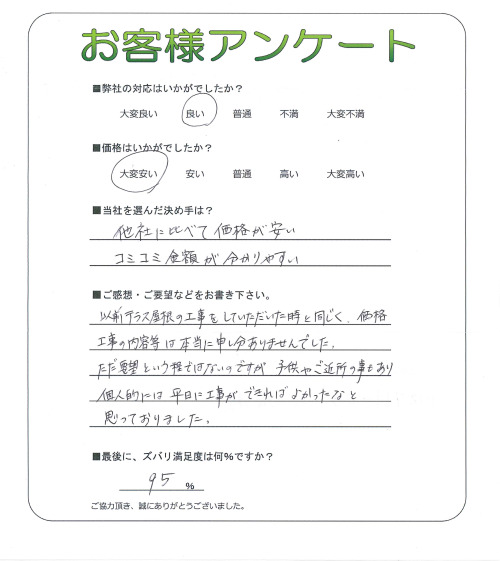 お客様アンケート
■弊社の対応はいかがでしたか？
大変良い 良い 普通 不満 大変不満
■価格はいかがでしたか？
大変安い 安い 普通 高い 大変高い
■当社を選んだ決め手は？
他社に比べて価格が安い
コミコミ金額が分かりやすい
■ご感想・ご要望などをお書き下さい。
以前テラス屋根の工事をしていただいた時と同じく、価格
工事の内容等は本当に申し分ありませんでした。
ただ要望という程ではないのですが 子供やご近所の事もあり
個人的には平日に工事ができればよかったなと
思っておりました。
■最後に、ズバリ満足度は何％ですか？
95 %
ご協力頂き、誠にありがとうございました。